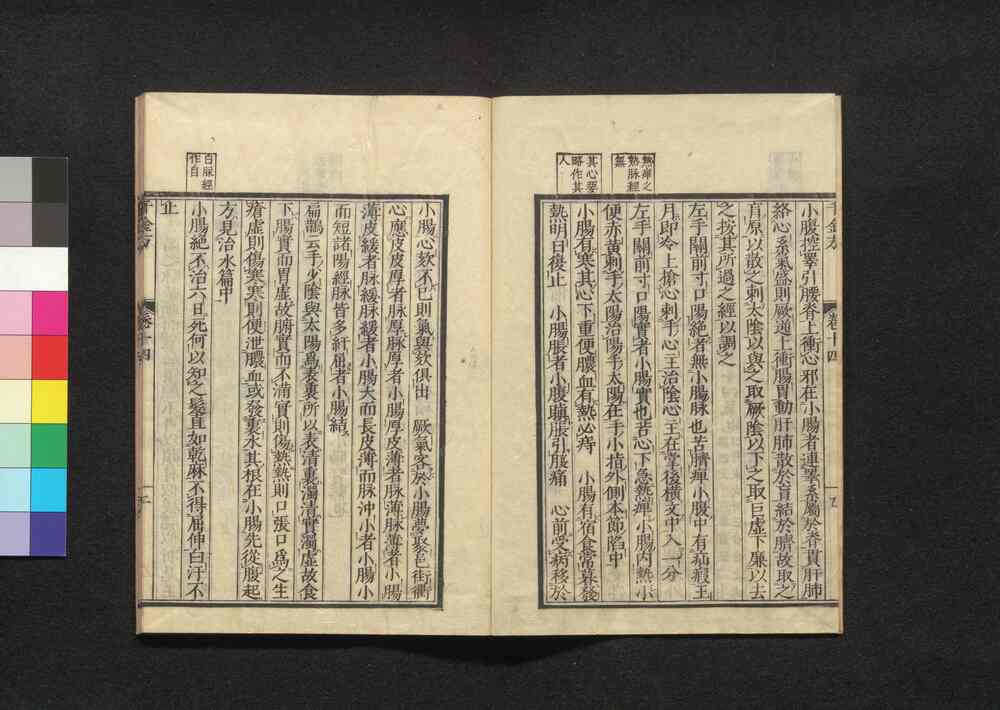 千金方 卷十四
熱痺之
熱脉經
無
其心要
略作其
人
小腹控睪引腰脊上衝心邪在小腸者連睪系屬於脊貫肝肺
絡心系氣盛則厥逆上衝腸胃動肝肺散於肓結於臍故取之
肓原以散之刺太陰以與之取厥陰以下之取巨虛下廉以去
之按其所過之經以調之
左手關前寸口陽絕者無小腸脉也苦臍痺小腹中有疝瘕王
月即冷上搶心刺手心主治陰心主在掌後橫文中入一分
左手關前寸口陽實者小腸實也苦心下急熱痺小腸內熱小
便赤黃刺手太陽治陽手太陽在手小指外側本節陷中
小腸有寒其心下重便膿血有熱必痔　小腸有宿食常暮發
熱明日復止　小腸脹者小腹䐜脹引腹痛　心前受病移於
白脉經
作自
小腸心欬不已則氣與欬俱出　厥氣客於小腸夢聚邑街衢
心應皮皮厚者脉厚脉厚者小腸厚皮薄者脉薄脉薄者小腸
薄皮緩者脉緩脉緩者小腸大而長皮薄而脉沖小者小腸小
而短諸陽經脉皆多紆屈者小腸結
扁鵲云手少陰與太陽爲表裏所以表清裏濁清實濁虛故食
下腸實而胃虛故腑實而不滿實則傷熱熱則口張口爲之生
瘡虛則傷寒寒則便泄膿血或發裏水其根在小腸先從腹起
方見治水篇中
小腸絕不治六日死何以知之髮直如乾麻不得屈伸白汗不
止
千金方 卷十四